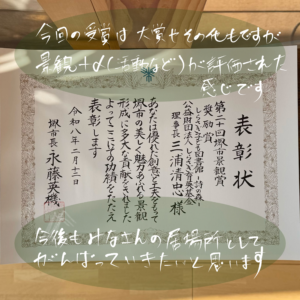 今回の受賞は大賞やその他もですが
景観+α(活動など)が評価された
感じです
表彰状
第二十回堺市景観賞
奨励賞
しらさぎ子ども図書館・詩の森
公益財団法人しらさぎ育英基金
理事長 三浦清忠様
あなたは優れた創意と工夫をもって
堺市の美しく魅力あふれる景観
形成に多大な貢献をされました
よってここにその功績をたたえ
表彰します
令和八年二月十二日
堺市長 永藤英機
今後もみなさんの居場所として
がんばっていきたいと思います